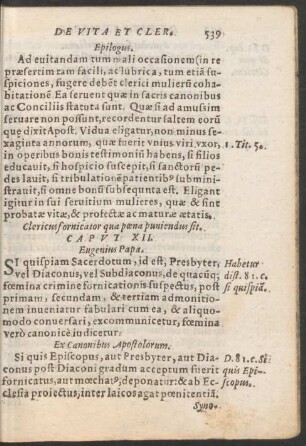 DE VITA ET CLER. 539
Epilogus.
Ad euitandam tum mali occasionem (in re
præsertim tam facili, ac lubrica, tum etiã su-
spiciones, fugere debẽt clerici mulierũ coha-
bitationẽ Ea seruent quæ in sacris canonibus
ac Conciliis statuta sunt. Quæ si ad amussim
seruare non possunt, recordentur saltem eorũ
quę dixit Apost. Vidua eligatur, non minus se-
xaginta annorum, quæ fuerit vnius viri vxor,
1. Tit. 5.
in operibus bonis testimoniũ habens, si filios
educauit, si hospicio suscepit, si sanctorũ pe-
des lauit, si tribulationẽ patientibꝰ submini-
strauit, si omne bonũ subsequuta est. Eligant
igitur in sui seruitium mulieres, quæ & sint
probatæ vitæ, & profectæ ac maturæ ætatis.
Clericus fornicator qua pœna puniendus sit.
CAPVT XII.
Eugenius Papa.
SI quispiam Sacerdotum, id est, Presbyter,
Habetur
vel Diaconus, vel Subdiaconus, de quacũq;
dist. 81. c.
fœmina crimine fornicationis suspectus, post
si quispiã.
primam, secundam, & tertiam admonitio-
nem inueniatur fabulari cum ea, & aliquo-
modo conuersari, excommunicetur, fœmina
verò canonicè iudicetur.
Ex Canonibus Apostolorum.
Si quis Episcopus, aut Presbyter, aut Dia-
D. 81. c. Si
conus post Diaconi gradum acceptum fuerit
quis Epi-
fornicatus, aut mœchatꝰ, deponatur: & ab Ec-
scopus.
clesia proiectus, inter laicos agat pœnitentiã.
Syno-